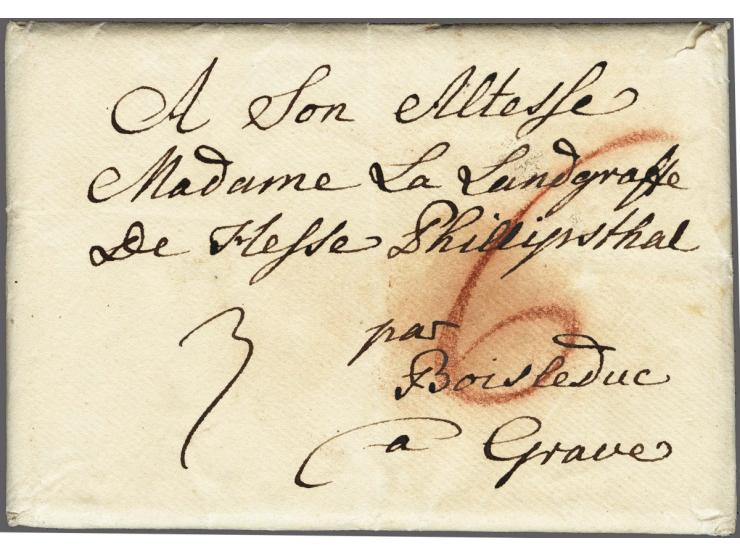 A Son Altesse
Madame La Landgraffe
De Hesse Phillipsthal
6
3 par
Boisleduc
a Grave